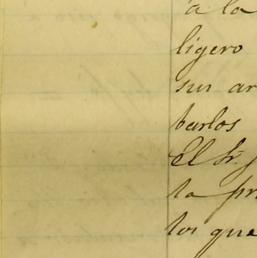 a la
ligero
sus ar
barlos
El Sr. J
la pr
los que